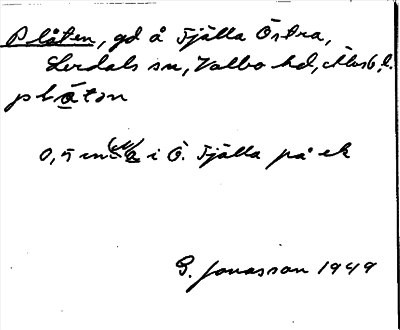 Plåten, gd å Fjälla Östra,
Lerdals sn, Valbo hd, Älvsb. l.
plåtən
0,5 i Ö. Fjälla på ek
G. Jonasson 1949